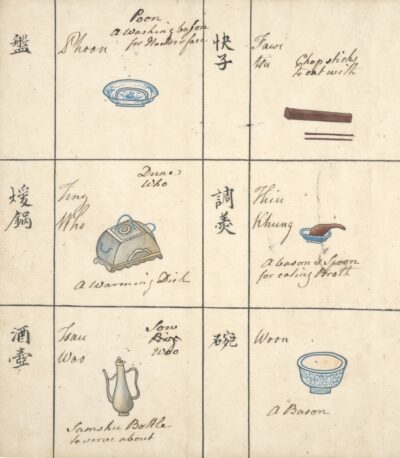 盤
Phoon
Poon
A Washing bason
for Hands & face
快子
Chopsticks
to eat with
煖鍋
Ting
Who
Dune
Who
A Warming Dish
調羹
Thiu
Khung
A bason & Spoon
for eating Broth
酒壺
Tsau
Woo
Sow
Woo
Samshu Bottle
to serve about
碗
Woon
A Bason